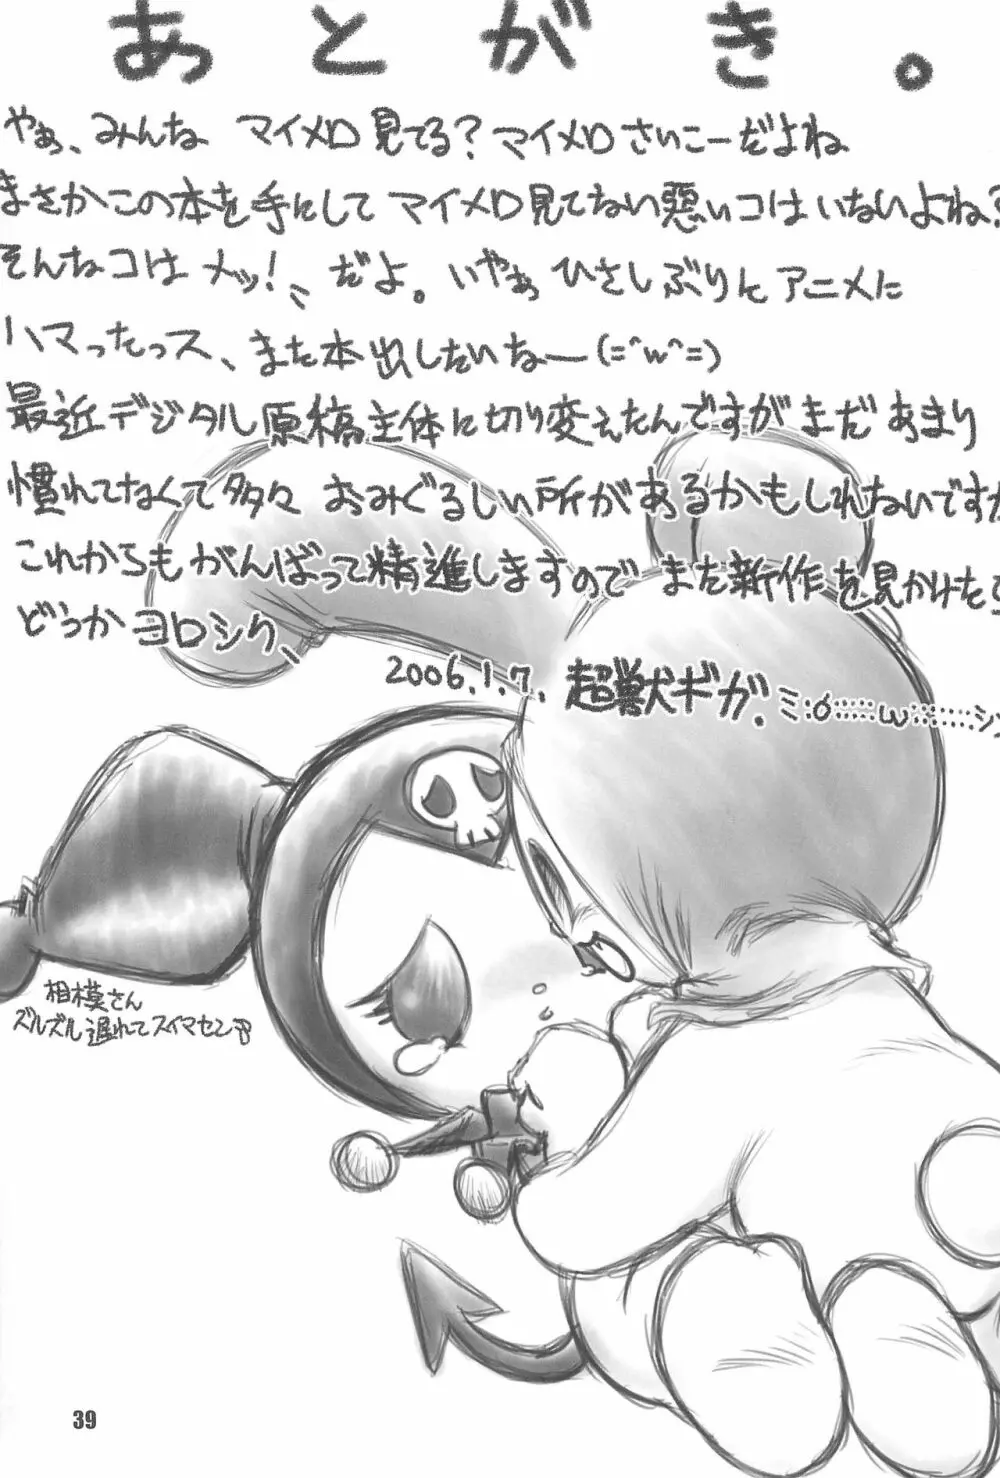 あとがき。
やぁ、みんな マイメロ見てる?マイメロさいこーだよね
まさかこの本を手にして マイメロ見てない悪いコはいないよね?
そんなコはメッ!、だよ。いやぁ ひさしぶりにアニメに
ハマったっス、また本出したいなー(=^w^=)
最近デジタル原稿主体に切り変えたんですがまだあまり
慣れてなくて多々 おみぐるしい所があるかもしれないですが
これからもがんばって精進しますので また新作を見かけたら
どうかヨロシク、
2006.1.7. 超獣ギガ. ミ:ó::::::w:::::::シ
相模さん
ズルズル遅れてスイマセン
39